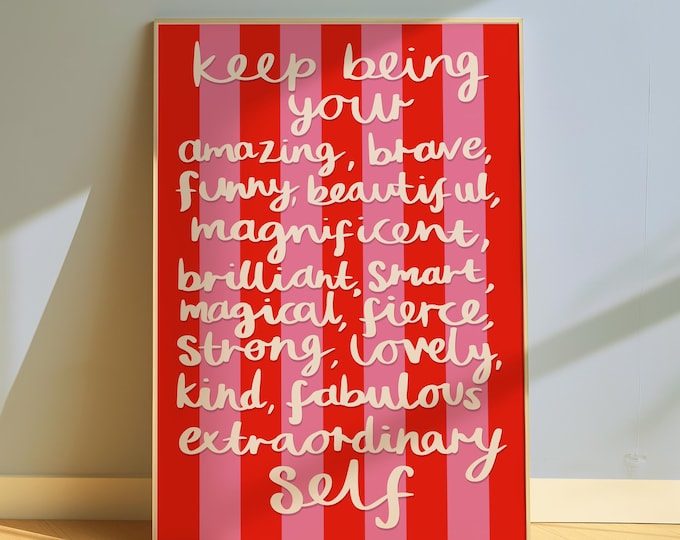 keep being
your
amazing, brave,
funny, beautiful,
magnificent,
brilliant, smart,
magical, fierce,
strong, lovely,
kind, fabulous
extraordinary
self